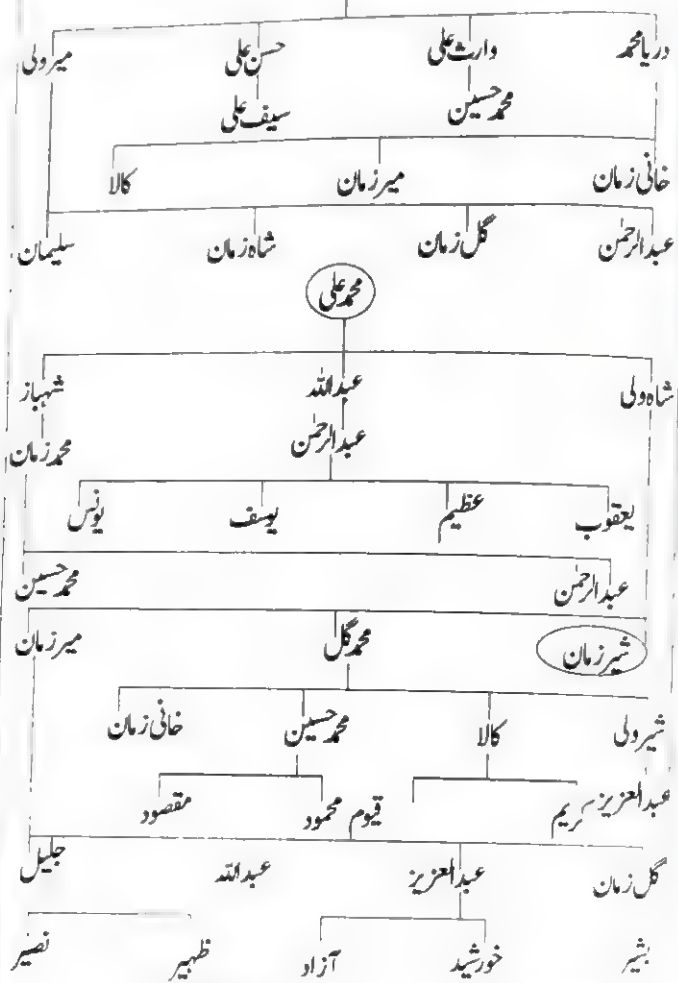 دریا محمد وارث علی حسن علی میرولی
محمد حسین سیف علی
خانی زمان میر زمان کالا
عبدالرحمٰن گل زمان شاہ زمان سلیمان
محمد علی
شاہ ولی عبداللہ شہباز
عبدالرحمٰن محمد زمان
یعقوب عظیم یوسف یونس
عبدالرحمٰن محمد حسین
شیر زمان محمد گل میر زمان
شیر ولی کالا محمد حسین خانی زمان
عبدالعزیز کریم قیوم محمود مقصود
گل زمان عبدالعزیز عبداللہ جلیل
بشیر خورشید آزاد ظہیر نصیر